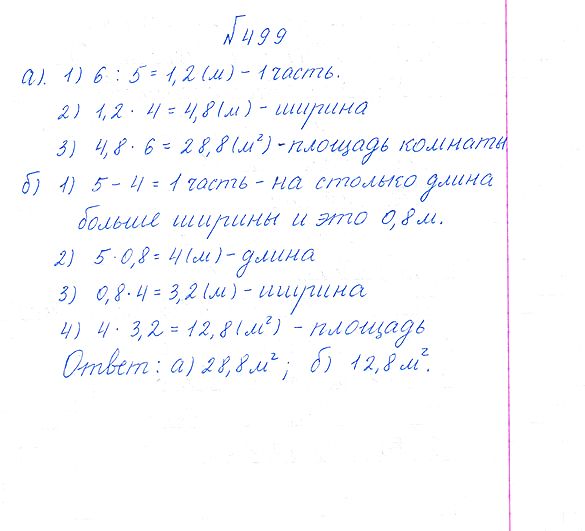 №499
а). 1) 6 : 5 = 1,2 (м) - 1 часть.
2) 1,2 · 4 = 4,8 (м) - ширина
3) 4,8 · 6 = 28,8 (м²) - площадь комнаты
б) 1) 5 - 4 = 1 часть - на столько длина
больше ширины и это 0,8 м.
2) 5 · 0,8 = 4 (м) - длина
3) 0,8 · 4 = 3,2 (м) - ширина
4) 4 · 3,2 = 12,8 (м²) - площадь
Ответ: а) 28,8 м² ; б) 12,8 м².